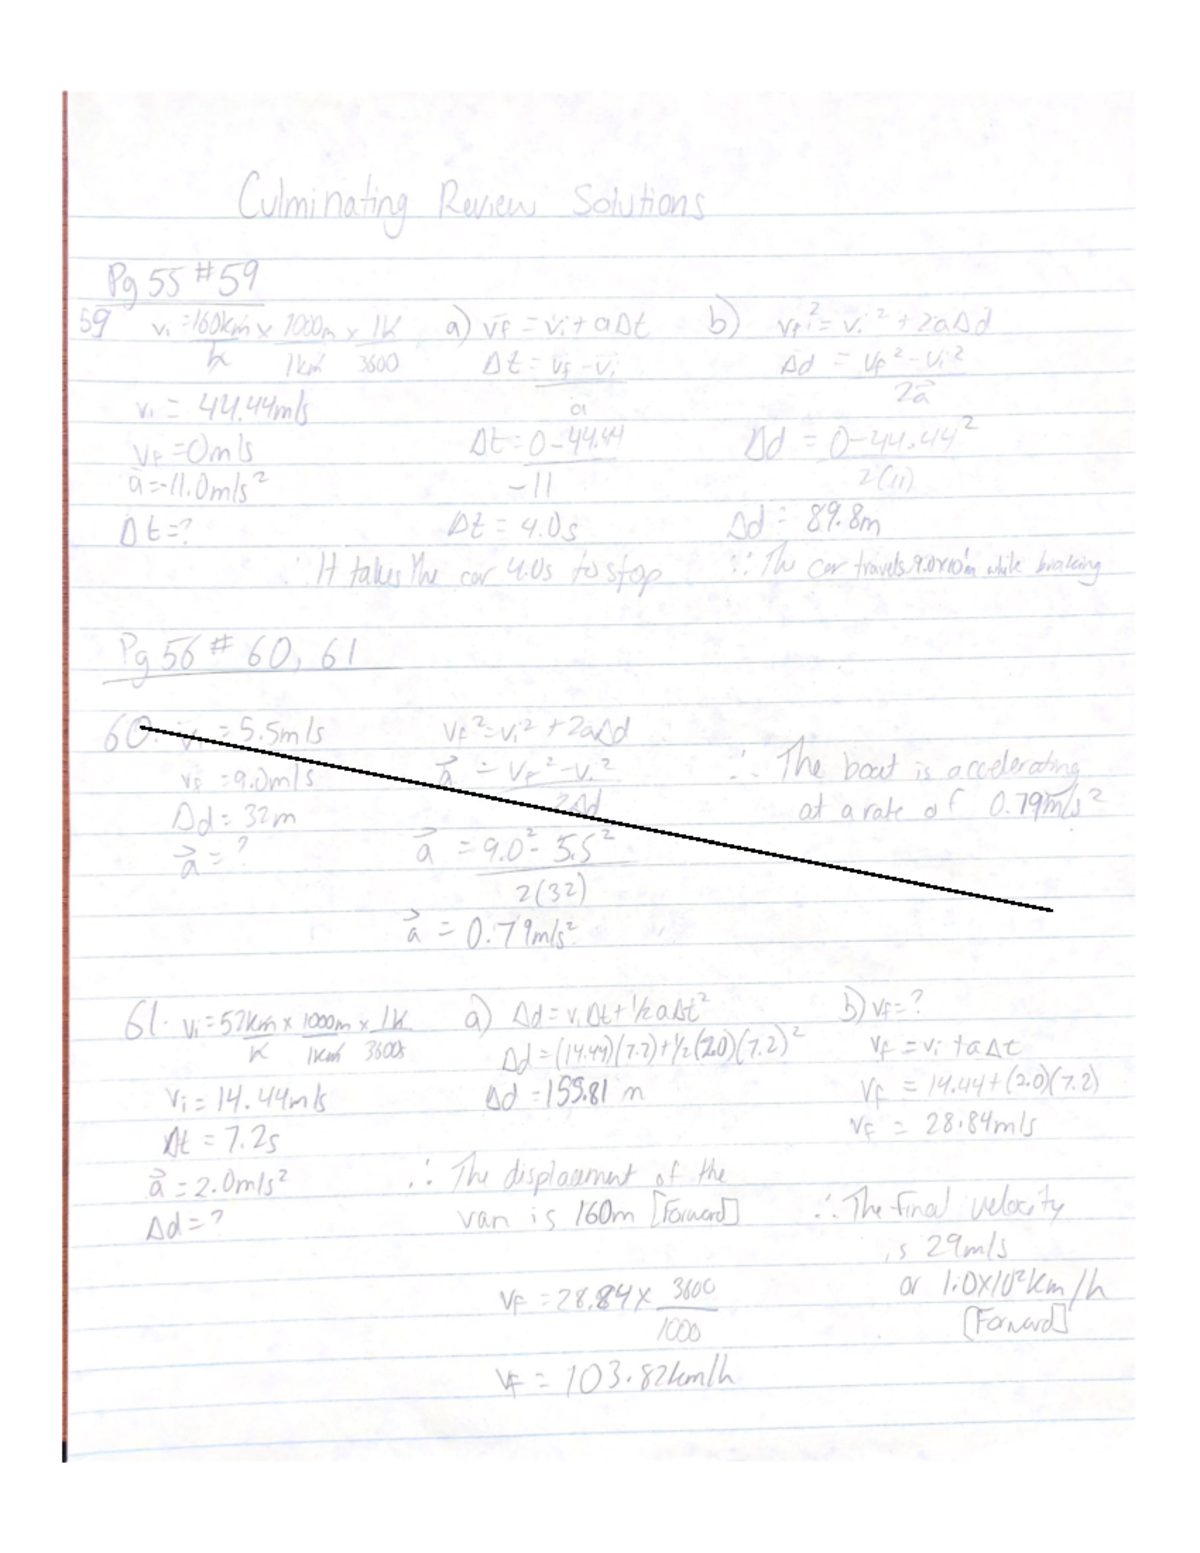 Culminating Review Solutions
Pg 55 #59
59 vi = 160km/h × 1000m/1km × 1h/3600
vi = 44.44m/s
vf = 0m/s
a = -11.0m/s²
Δt = ?
a) vf = vi + aΔt
Δt = vf - vi / a
Δt = 0 - 44.44 / -11
Δt = 4.0s
∴ It takes the car 4.0s to stop
b) vf² = vi² + 2aΔd
Δd = vf² - vi² / 2a
Δd = 0 - 44.44² / 2(11)
Δd = 89.8m
∴ The car travels 9.0x10¹m while braking
Pg 56 # 60, 61
60. vi = 5.5m/s
vf = 9.0m/s
Δd = 32m
a = ?
vf² = vi² + 2aΔd
a = vf² - vi² / 2Δd
a = 9.0² - 5.5² / 2(32)
a = 0.79m/s²
∴ The boat is accelerating
at a rate of 0.79m/s²
61. vi = 52km/h × 1000m/1km × 1h/3600s
vi = 14.44m/s
Δt = 7.2s
a = 2.0m/s²
Δd = ?
a) Δd = viΔt + ½aΔt²
Δd = (14.44)(7.2) + ½(2.0)(7.2)²
Δd = 155.81 m
∴ The displacement of the
van is 160m [Forward]
b) vf = ?
vf = vi + aΔt
vf = 14.44 + (2.0)(7.2)
vf = 28.84m/s
∴ The final velocity
is 29m/s
or 1.0X10²km/h
[Forward]
vf = 28.84 × 3600/1000
vf = 103.82km/h